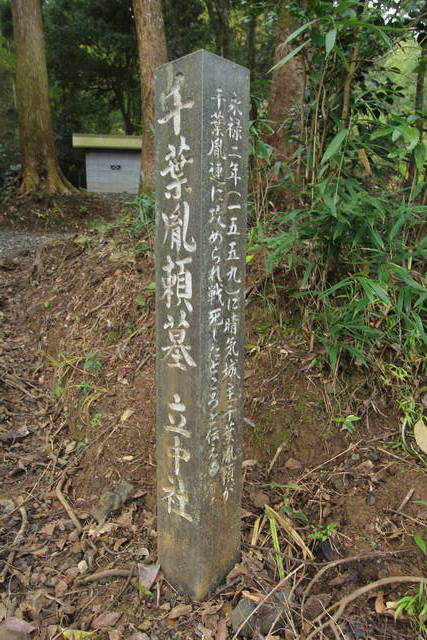 千葉胤頼墓 立中社
永禄二年(一五五九)に晴気城主千葉胤頼が
千葉胤連に攻められ戦死したところと伝える